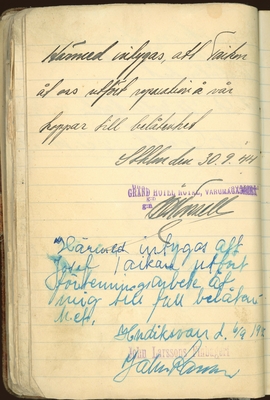 Härmed intygas, att Taikon
åt oss utfört reparation å vår
koppar till belåtenhet
Sthlm den 30.9.44
GRAND HOTEL ROYAL, VARUMAGASINET
Härmed intygas att
Josef Taikon, utfört
förtenningsarbete åt
mig till full belåten-
het.
Hudiksvall d. 4/9 19
John Larssons
John Larsson